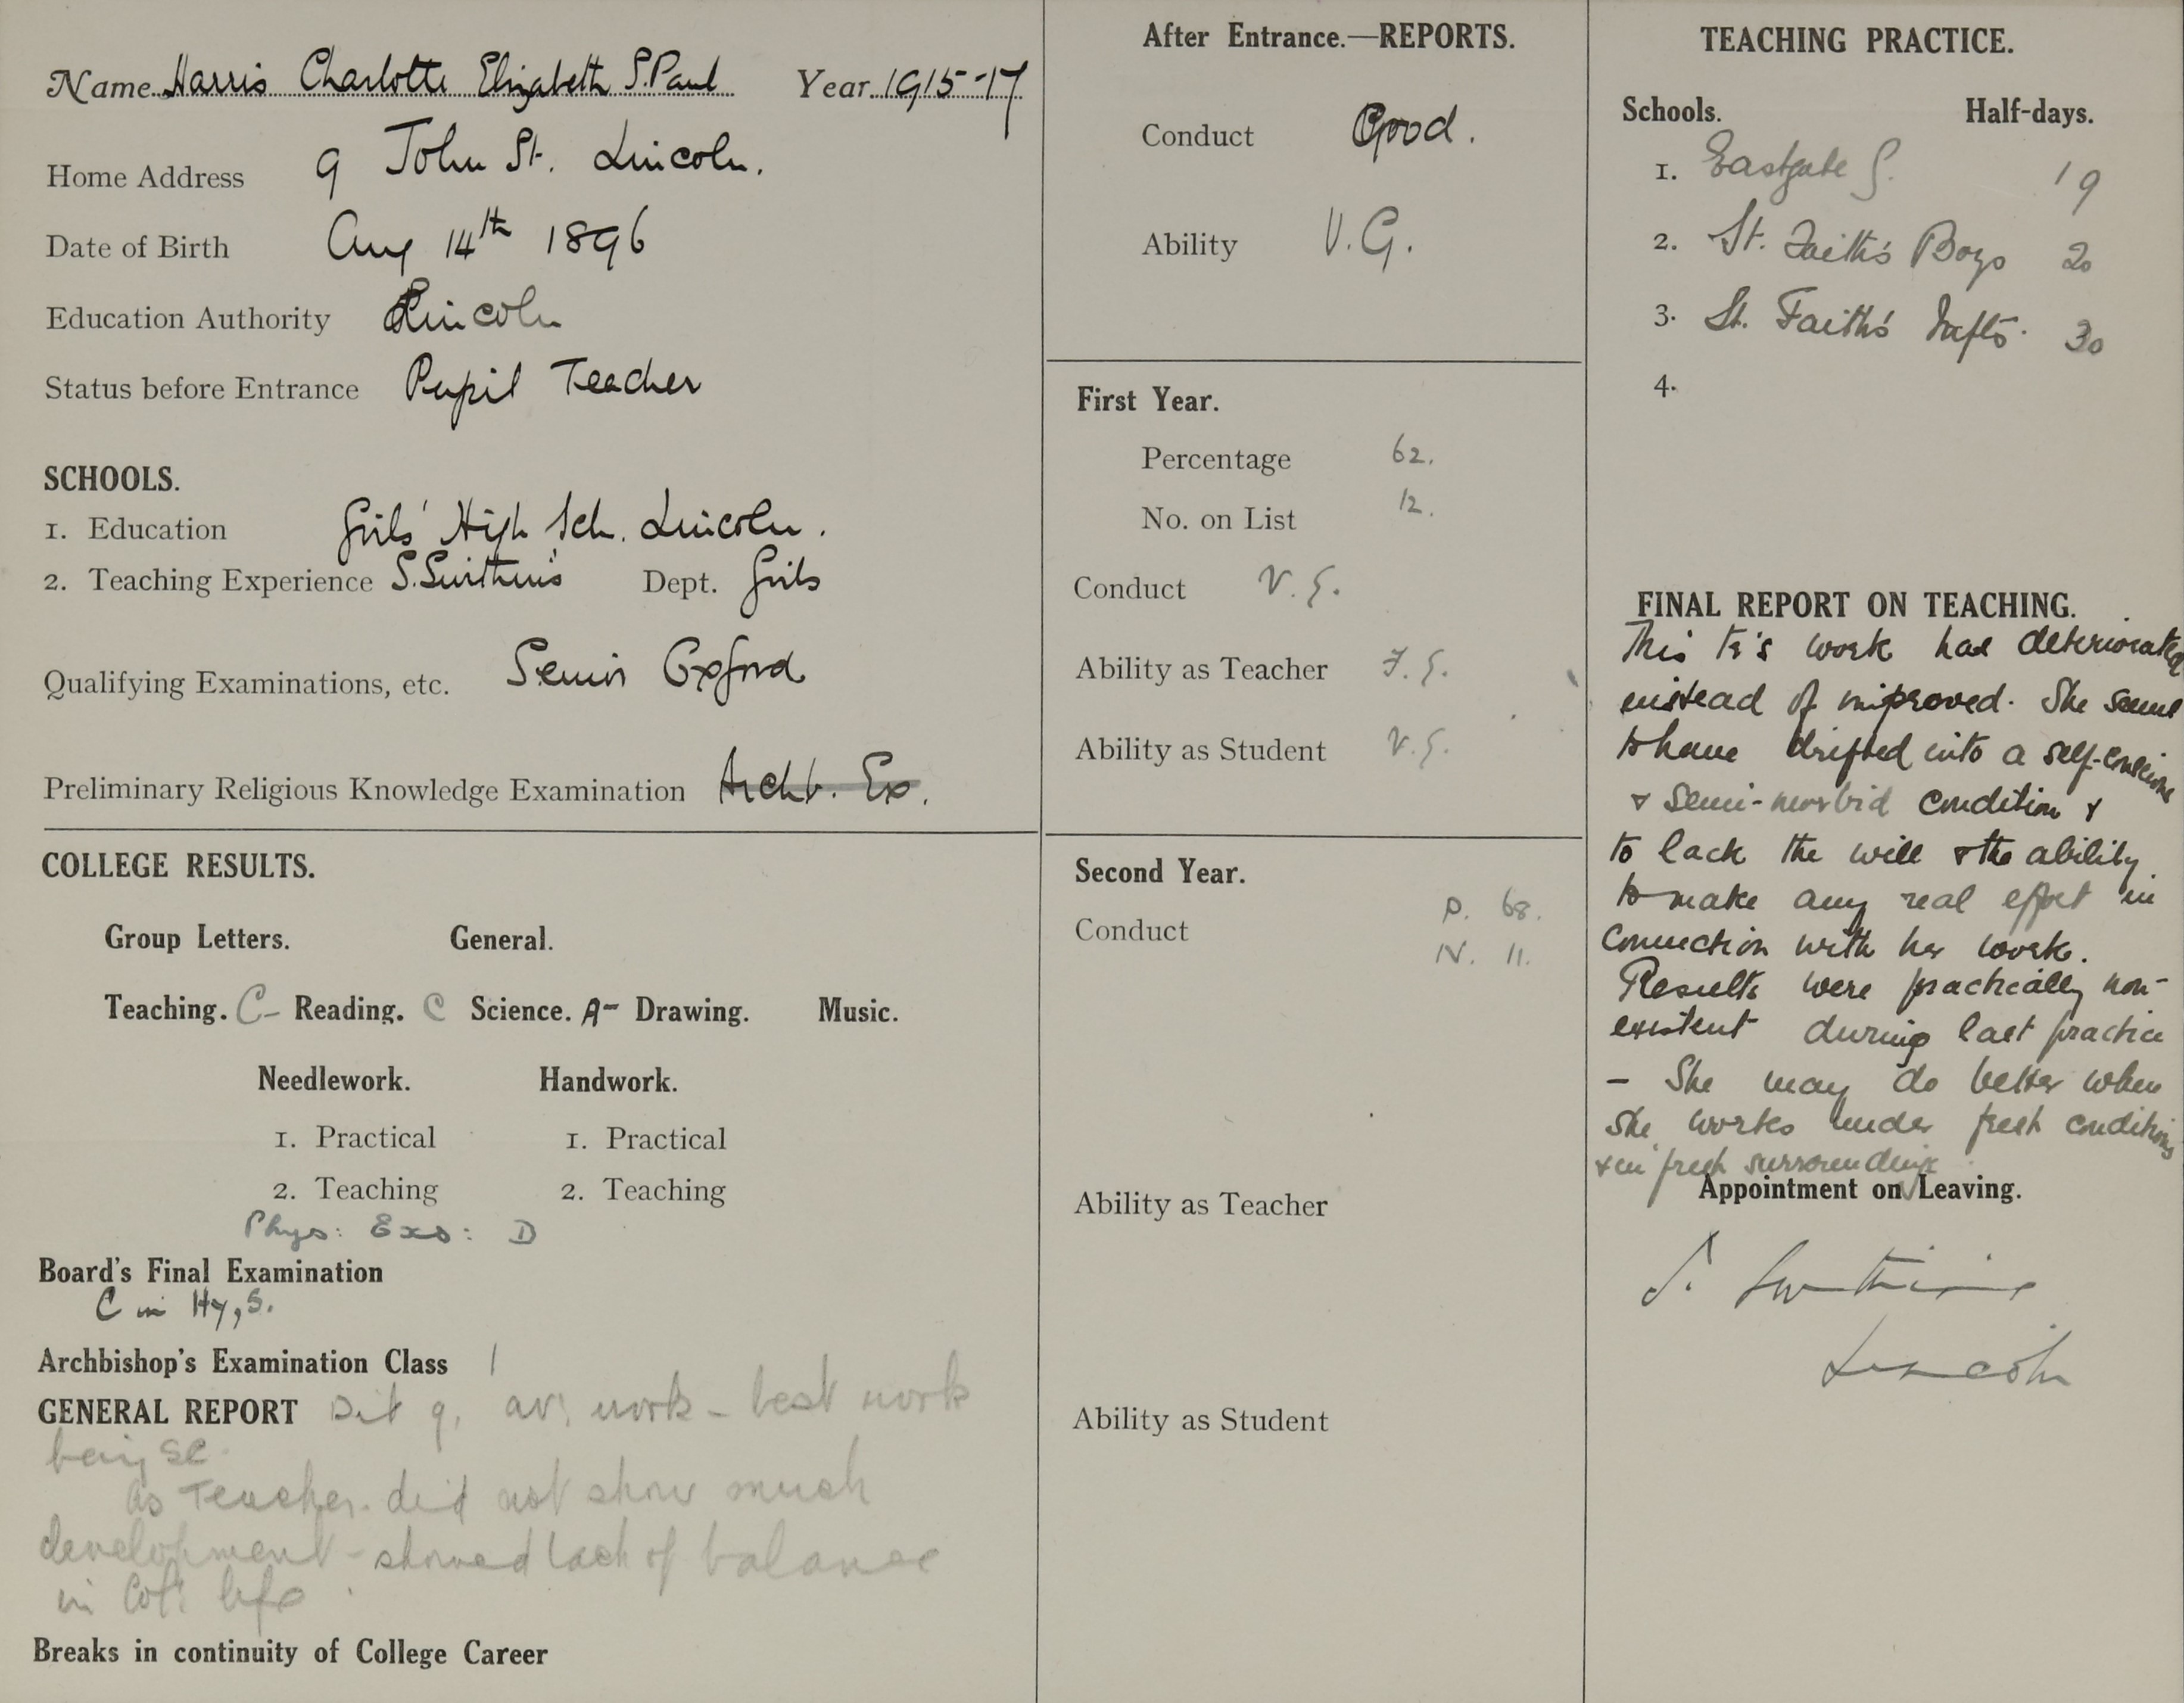 Name Harris Charlotte Elizabeth S. Paul Year 1915-17
Home Address 9 John St. Lincoln.
Date of Birth Aug 14th 1896
Education Authority Lincoln
Status before Entrance Pupil Teacher
SCHOOLS.
1. Education Girls' High Sch. Lincoln.
2. Teaching Experience S. Swithin's Dept. Girls
Qualifying Examinations, etc. Senior Oxford
Preliminary Religious Knowledge Examination Archb. Ex.
COLLEGE RESULTS.
Group Letters. General.
Teaching. C- Reading. C Science. A- Drawing. Music.
Needlework. Handwork.
1. Practical 1. Practical
2. Teaching 2. Teaching
Phys: Exs: D
Board's Final Examination
C in Hy, S.
Archbishop's Examination Class 1
GENERAL REPORT Did g. av. work - best work
being sc.
As Teacher. did not show much
development - showed lack of balance
in Col: life.
Breaks in continuity of College Career
After Entrance.—REPORTS.
Conduct Good.
Ability V.G.
First Year.
Percentage 62.
No. on List 12.
Conduct V.G.
Ability as Teacher F.G.
Ability as Student V.G.
Second Year.
P. 68.
Conduct
N. 11.
Ability as Teacher
Ability as Student
TEACHING PRACTICE.
Schools. Half-days.
1. Eastgate G. 19
2. St. Faith's Boys 20
3. St. Faith's Infts. 30
4.
FINAL REPORT ON TEACHING.
This Tr's work has deteriorated
instead of improved. She seems
to have drifted into a self-conscious
& semi-morbid condition &
to lack the will & the ability
to make any real effort in
connection with her work.
Results were practically non-
existent during last practice
- She may do better when
she works under fresh conditions
& in fresh surroundings
Appointment on Leaving.
S. Swithin's
Lincoln